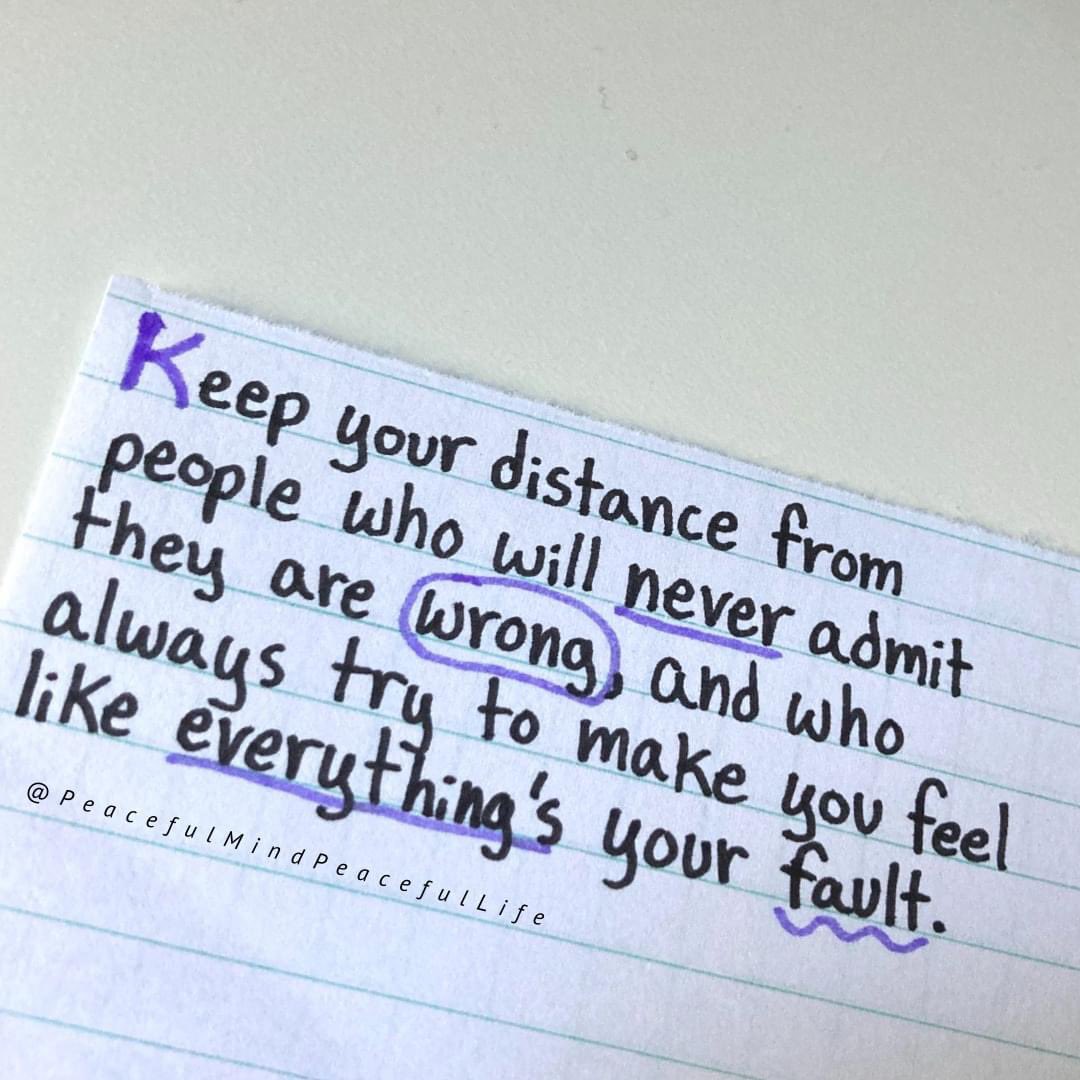 Keep your distance from
people who will never admit
they are wrong, and who
always try to make you feel
like everything's your fault.
@PeacefulMindPeacefulLife